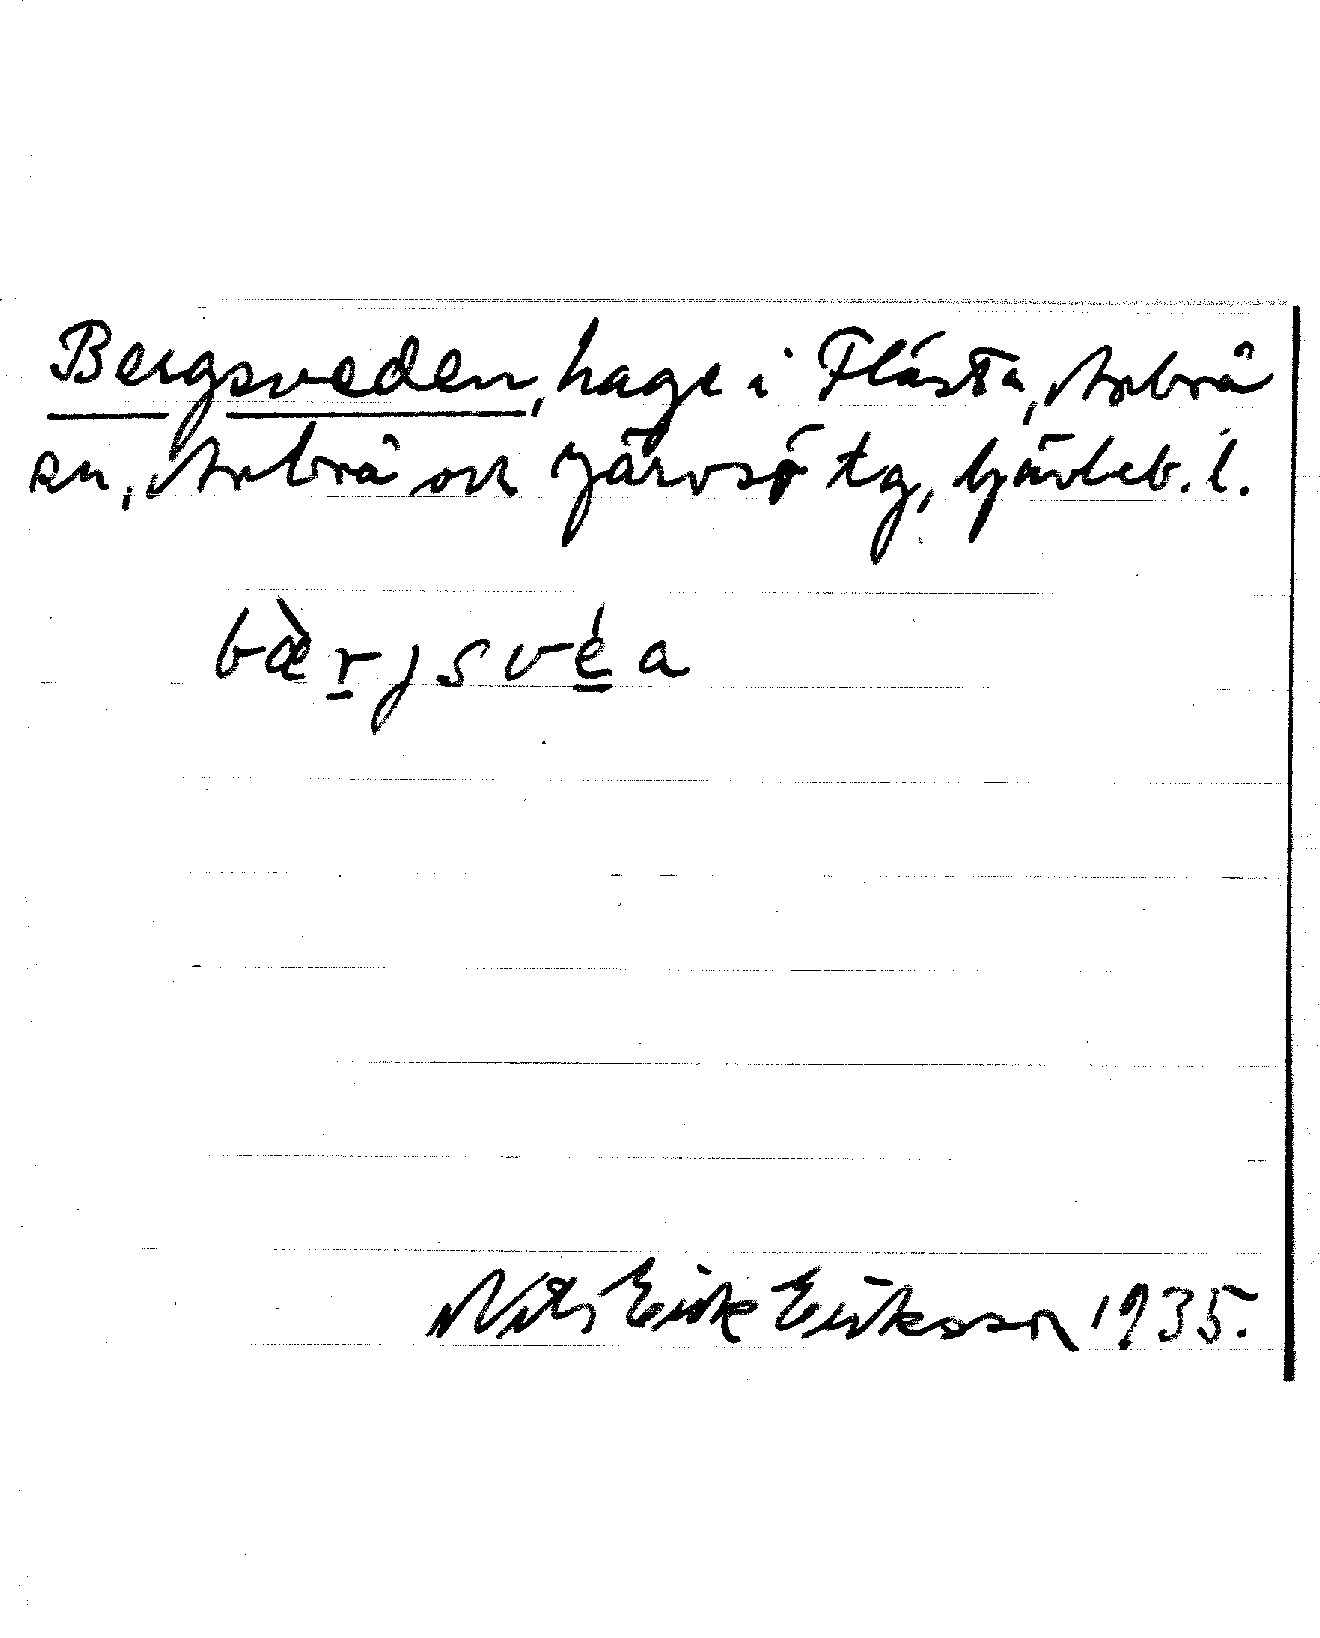 Bergsveden, hage i Flästa, Arbrå
sn, Arbrå och Järvsö tg, Gävleb. l.
bæ̀r̲jsvé̲a
Nils Erik Eriksson 1935.